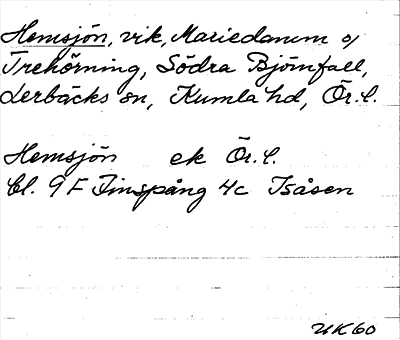 Hemsjön, vik, Mariedamm o/
Trehörning, Södra Björnfall,
Lerbäcks sn, Kumla hd, Ör. l.
Hemsjön ek Ör. l.
bl. 9 F Finspång 4c Isåsen
UK60